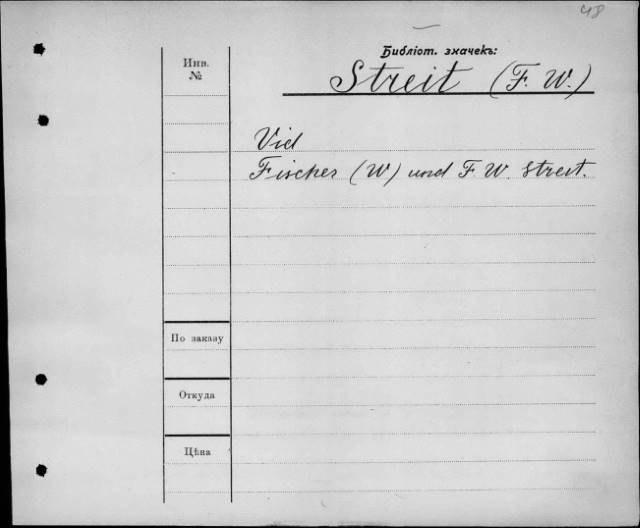 48
Библіот. значекъ:
Инв.
№
Streit (F. W.)
Vid
Fischer (W) und F. W. Streit.
По заказу
Откуда
Цѣна